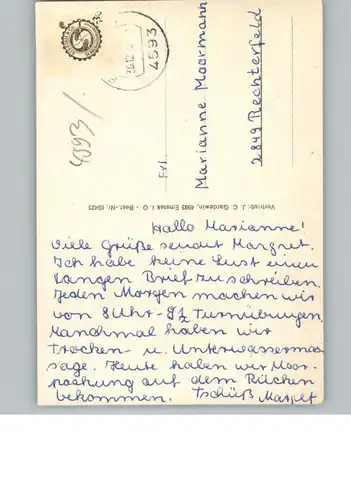 4593/
30.12.
4593
Frl.
Marianne Moormann
2849 Rechterfeld
Vertrieb: J. C. Gardewin, 4593 Emstek i. O. - Best.-Nr. 02423
Hallo Marianne!
Viele Grüße sendet Margret.
Ich habe keine Lust einen
langen Brief zu schreiben.
Jeden Morgen machen wir
von 8 Uhr - 9½ Turnübungen.
Manchmal haben wir
Trocken- u. Unterwassermas
sage. Heute haben wir Moor-
packung auf dem Rücken
bekommen. Tschüß Margret